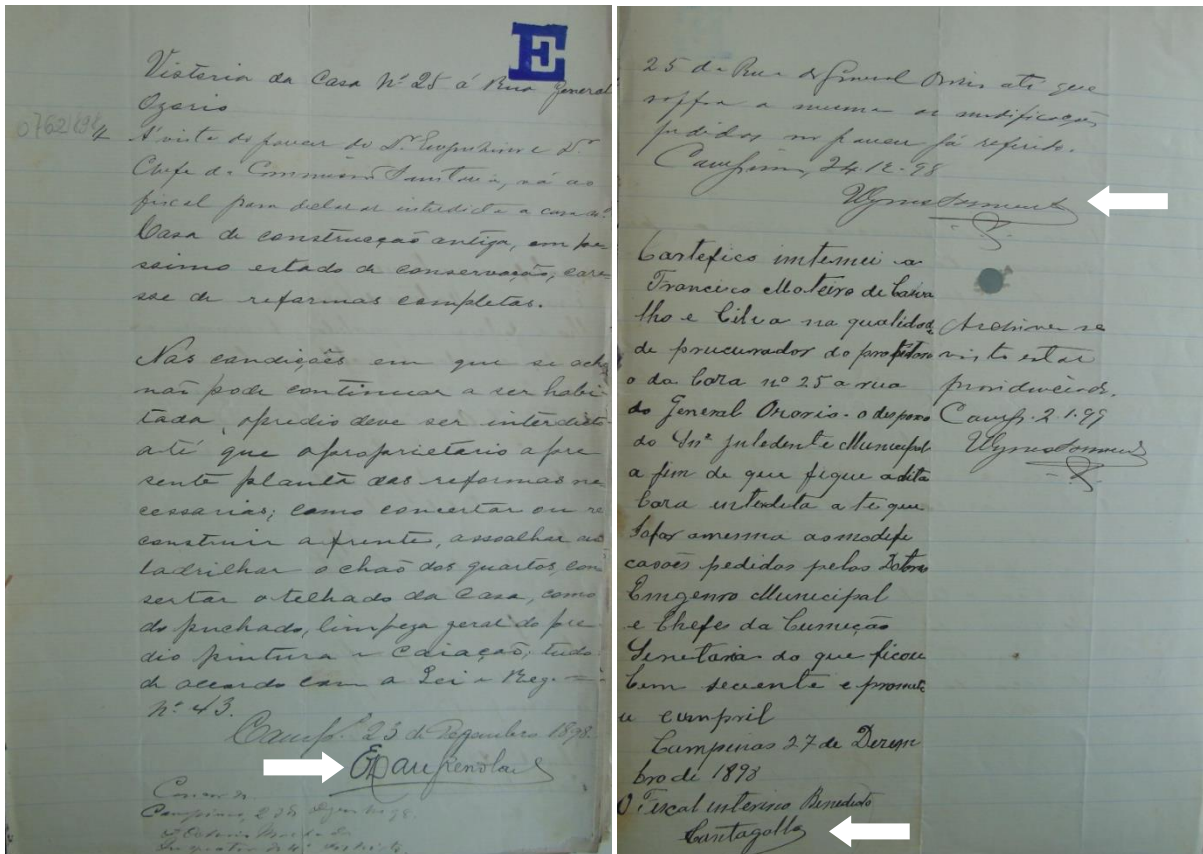 E
Vistoria da Casa Nº 25 á Rua General
Ozorio
0762/898
Á vista do parecer do Dr. Engenheiro e Dr.
Chefe da Commissão Sanitaria, vá ao
fiscal para declarar interdicta a casa nº
Casa de construcção antiga, em pe-
ssimo estado de conservação, care-
sse de reformas completas.
Nas condições em que se acha
naõ pode continuar a ser habi-
tada, opredio deve ser interdicto
até que oproprietario apre
sente planta das reformas ne
cessarias; como concertar ou re
construir a frente, assoalhar ou
ladrilhar o chaõ dos quartos, con
sertar otelhado da Casa, como
do puchado, limpeza geral do pre
dio pintura e Caiação; tudo
de accordo com a Lei e Reg.
Nº 43.
Camps. 23 de Dezembro 1898.
Concordo.
Campinas, 23 98.
Inspector do 4º districto
25 da Rua do General Osorio até que
soffra a mesma as modificações
pedidas no parecer já referido.
Campinas, 24-12-98
Cartefico intemei a
Francisco Moteiro de Carva
lho e Cilva na qualidade
de prucurador do
o da Cara nº 25 a rua
do General Ororio o
do Municipal
a fim de que fique adita
Cara interdita a te que
fafar amesma as modefi
casoẽs pedidos pelos
Emgenro Municipal
e Chefe da Cumução
Senetaria do que ficou
bem secuente e promete
u cumpril
Cumpinas 27 de Dezem
bro de 1898
O Fiscal interino Benedicto
Cantagallo
Archive-se
visto estar
providenciado.
Camps. 2-1-99